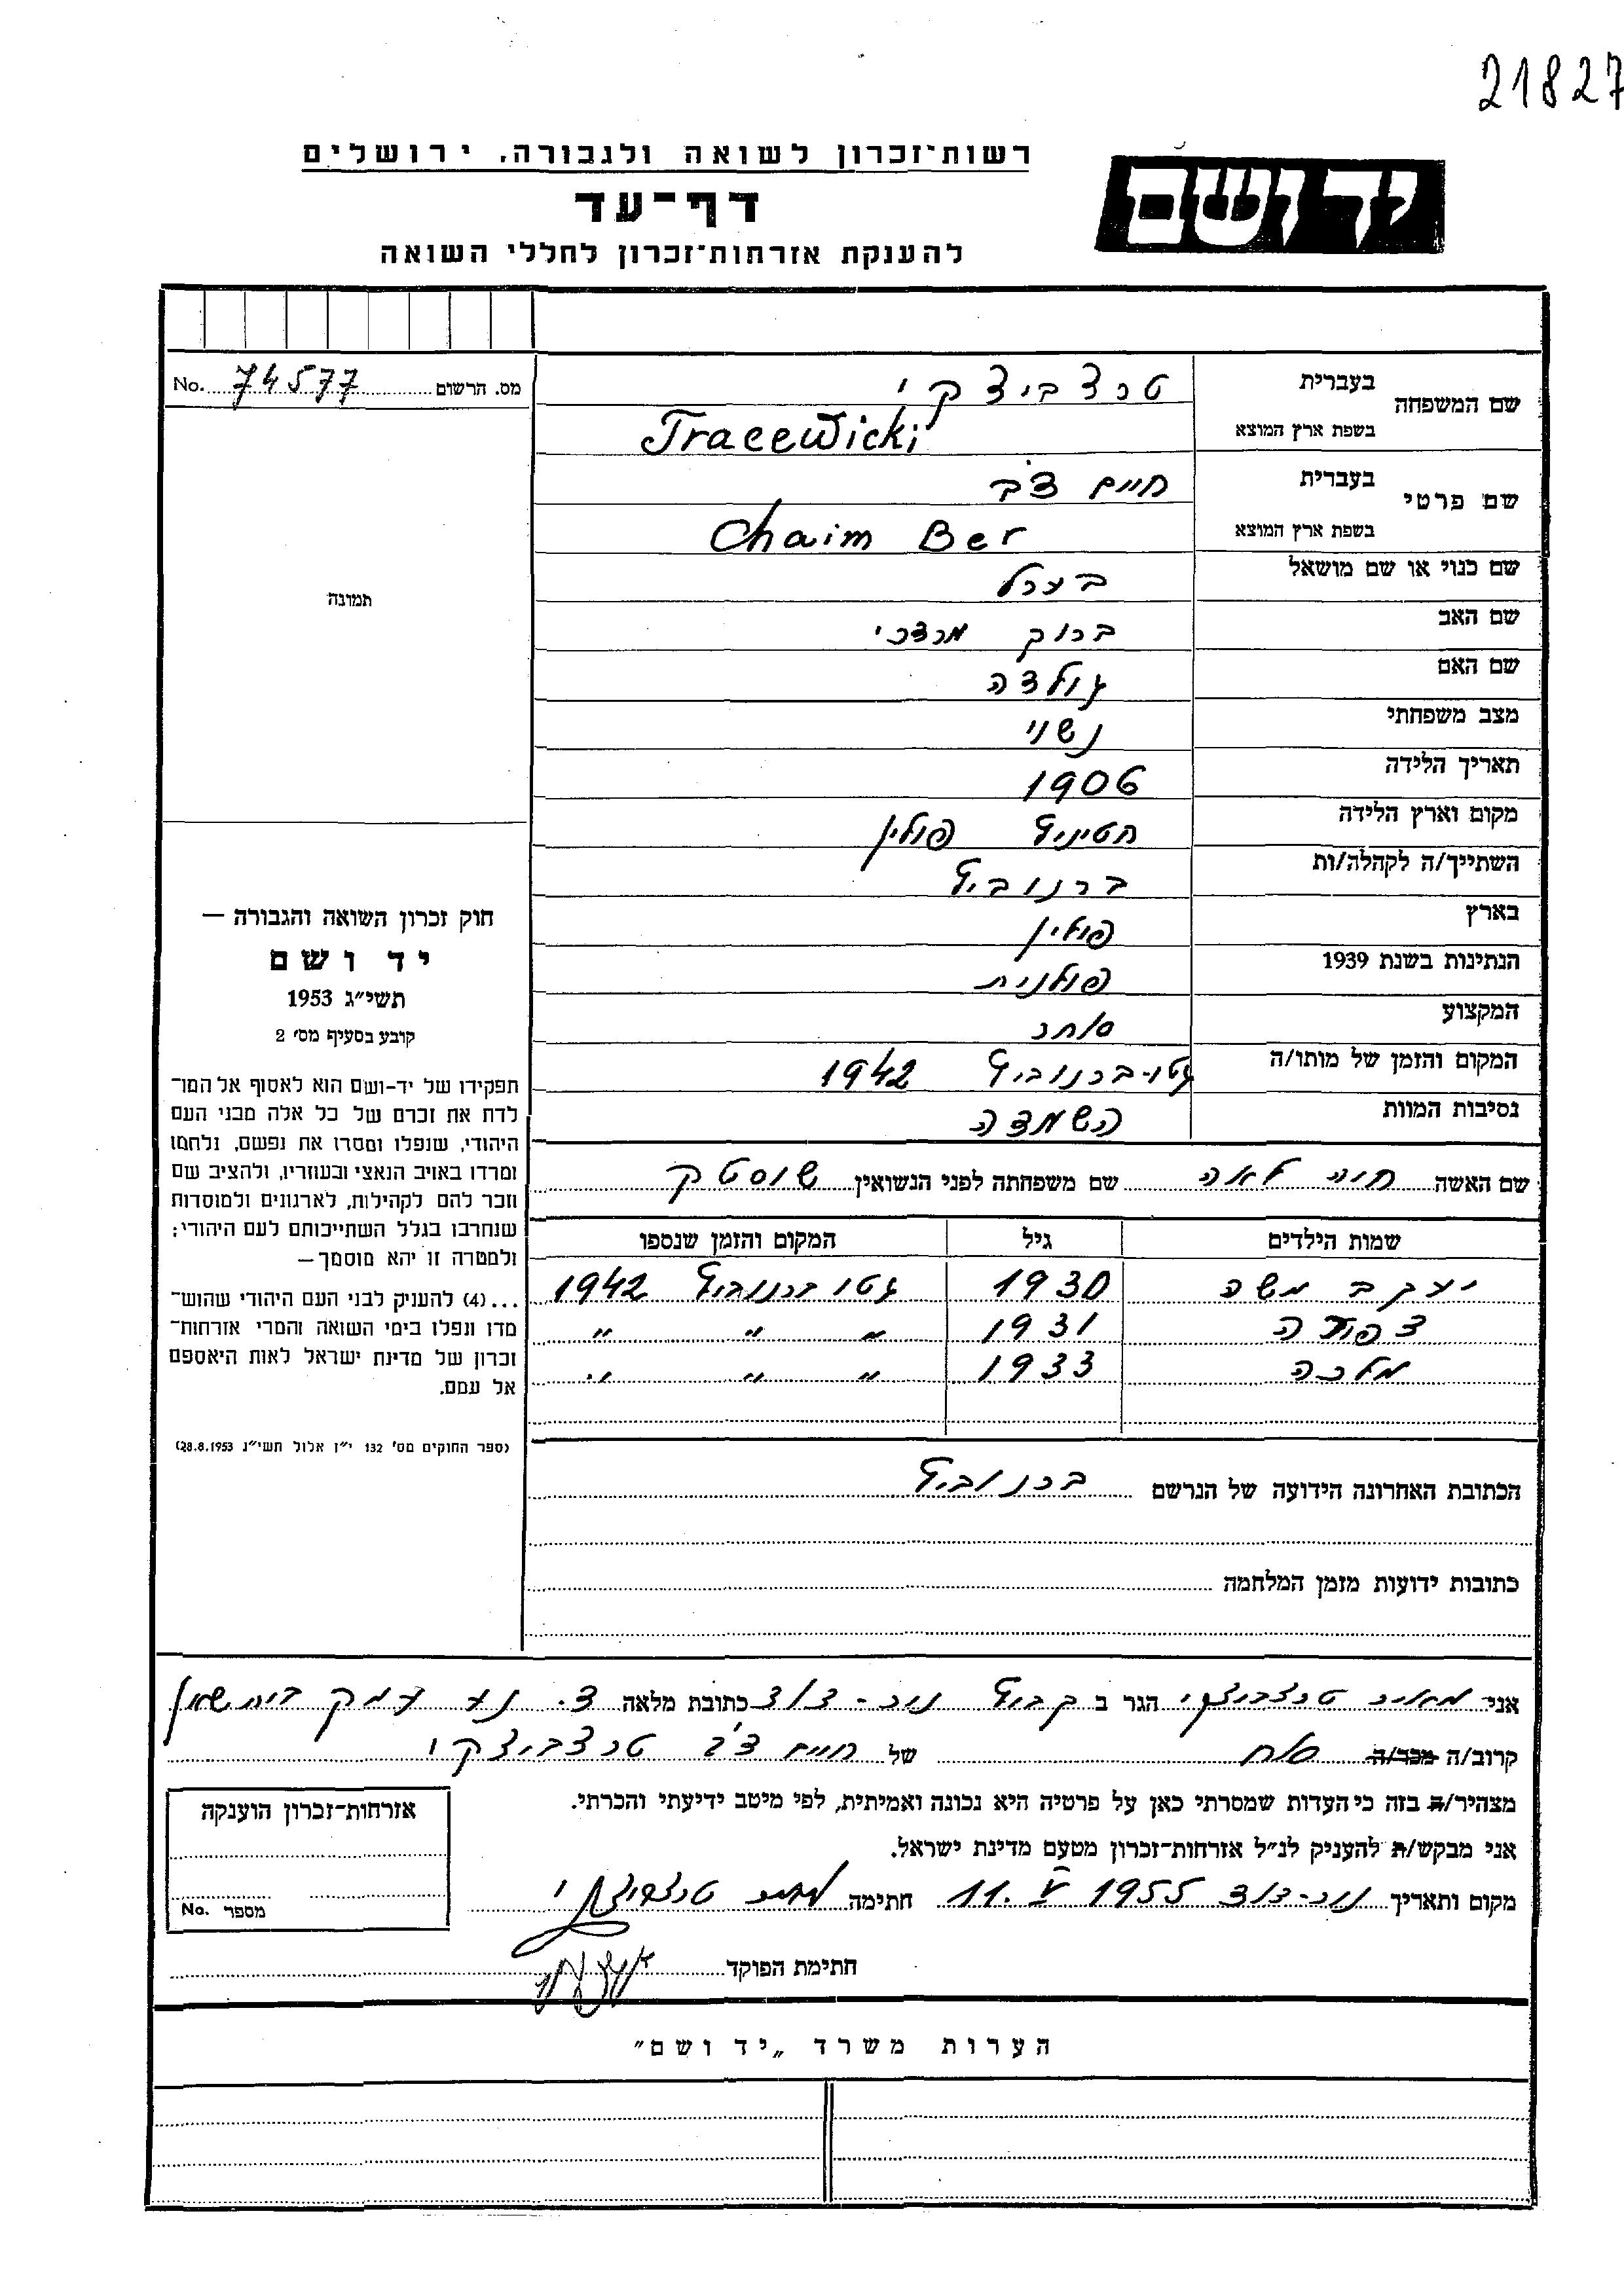 21827
רשות־זכרון לשואה ולגבורה, ירושלים
יד ושם
דף־עד
להענקת אזרחות־זכרון לחללי השואה
מס. הרשום 74577 No.
שם המשפחה
בעברית טרצביצקי
בשפת ארץ המוצא Tracewicki
שם פרטי
בעברית חיים דב
בשפת ארץ המוצא Chaim Ber
שם כנוי או שם מושאל בערל
שם האב ברוך מרדכי
שם האם גולדה
מצב משפחתי נשוי
תאריך הלידה 1906
מקום וארץ הלידה חטיניץ פולין
השתייך/ה לקהלה/ות ברנוביץ
בארץ פולין
הנתינות בשנת 1939 פולנית
המקצוע סוחר
המקום והזמן של מותו/ה גטו-ברנוביץ 1942
נסיבות המוות השמדה
שם האשה חיה לאה שם משפחתה לפני הנשואין שוסטק
תמונה
חוק זכרון השואה והגבורה —
יד ושם
תשי״ג 1953
קובע בסעיף מס׳ 2
תפקידו של יד-ושם הוא לאסוף אל המו־
לדת את זכרם של כל אלה מבני העם
היהודי, שנפלו ומסרו את נפשם, נלחמו
ומרדו באויב הנאצי ובעוזריו, ולהציב שם
וזכר להם לקהילות, לארגונים ולמוסדות
שנחרבו בגלל השתייכותם לעם היהודי;
ולמטרה זו יהא מוסמך—
...(4) להעניק לבני העם היהודי שהוש־
מדו ונפלו בימי השואה והמרי אזרחות־
זכרון של מדינת ישראל לאות היאספם
אל עמם.
(ספר החוקים מס׳ 132 י״ז אלול תשי״ג 28.8.1953)
שמות הילדים גיל המקום והזמן שנספו
יעקב משה 1930 גטו ברנוביץ 1942
צפורה 1931 " " "
מלכה 1933 " " "
הכתובת האחרונה הידועה של הנרשם ברנוביץ
כתובות ידועות מזמן המלחמה
אני מאיר טרצביצקי הגר ב קבוץ נוה-דוד כתובת מלאה ד. נע עמק בית שאן
קרוב/ה מכר/ה אח של חיים דב טרצביצקי
מצהיר/ה בזה כי העדות שמסרתי כאן על פרטיה היא נכונה ואמיתית, לפי מיטב ידיעתי והכרתי.
אני מבקש/ת להעניק לנ״ל אזרחות־זכרון מטעם מדינת ישראל.
מקום ותאריך 11. V 1955 חתימה מאיר טרצביצקי
חתימת הפוקד
אזרחות-זכרון הוענקה
מספר No.
הערות משרד „יד ושם״